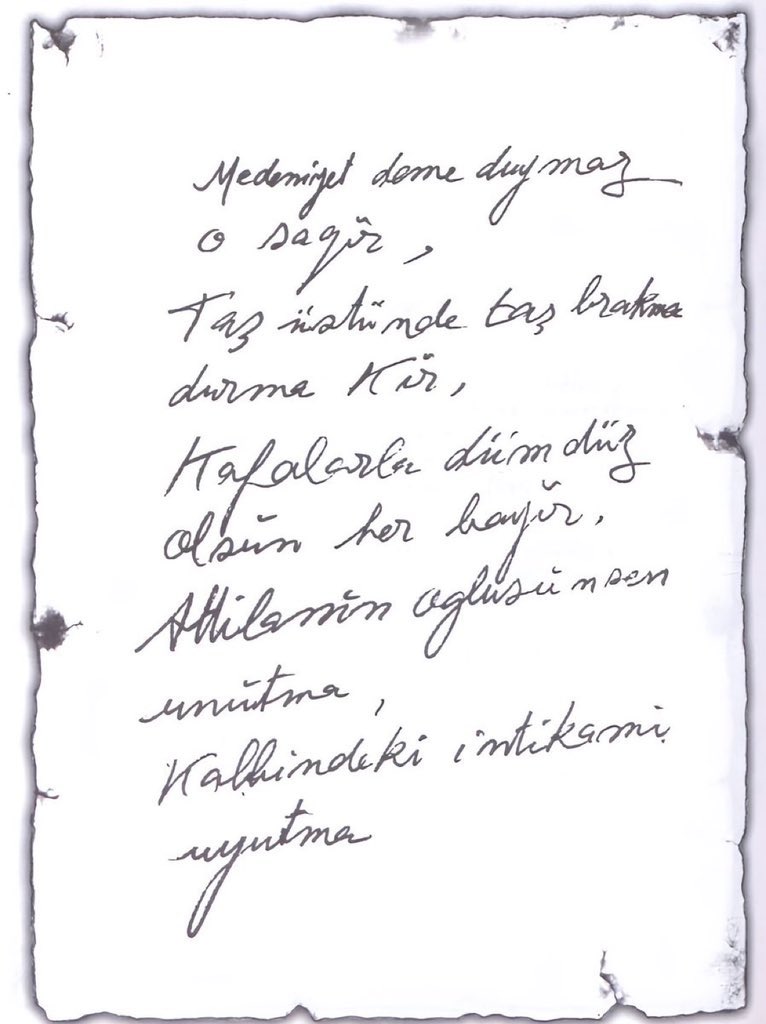 Medeniyet deme duymaz
o sagır,
Taş üstünde taş brakma
durma Kır,
Kafalarla düm düz
olsun her bayır.
Attilanın oglusun sen
unutma,
Kalbindeki intikami
uyutma